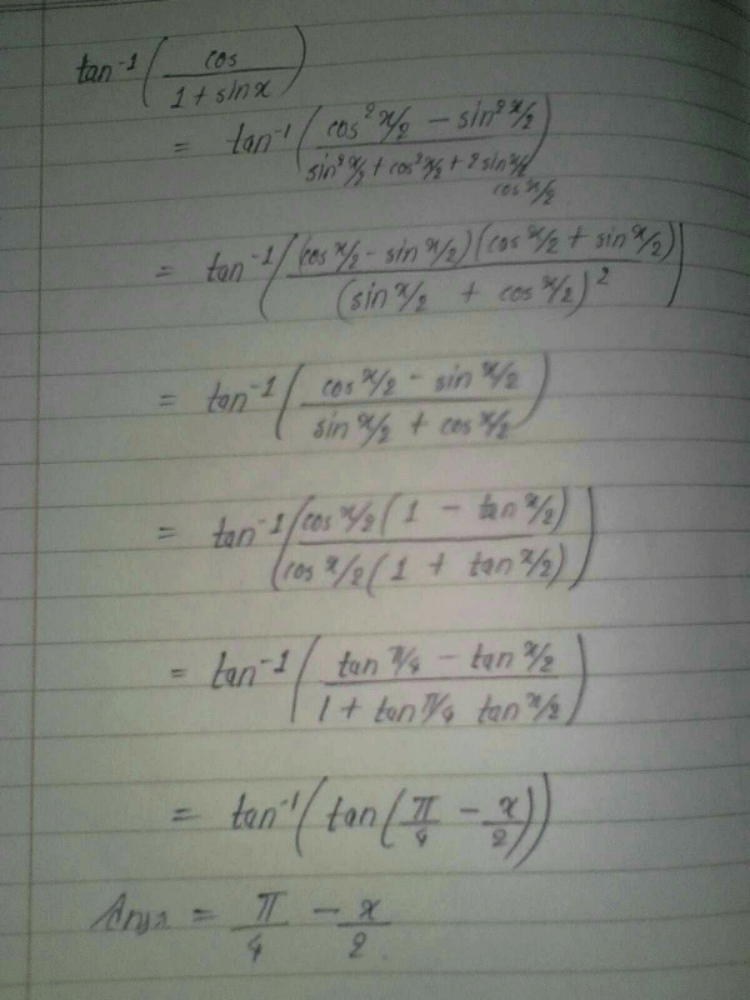 tan⁻¹ ( cos / 1 + sinx )
= tan⁻¹ ( cos² x/2 − sin² x/2 / sin² x/2 + cos² x/2 + 2 sin x/2 cos x/2 )
= tan⁻¹ ( (cos x/2 − sin x/2) (cos x/2 + sin x/2) / (sin x/2 + cos x/2)² )
= tan⁻¹ ( cos x/2 − sin x/2 / sin x/2 + cos x/2 )
= tan⁻¹ ( cos x/2 ( 1 − tan x/2 ) / cos x/2 ( 1 + tan x/2 ) )
= tan⁻¹ ( tan π/4 − tan x/2 / 1 + tan π/4 tan x/2 )
= tan⁻¹ ( tan ( π/4 − x/2 ) )
= π/4 − x/2